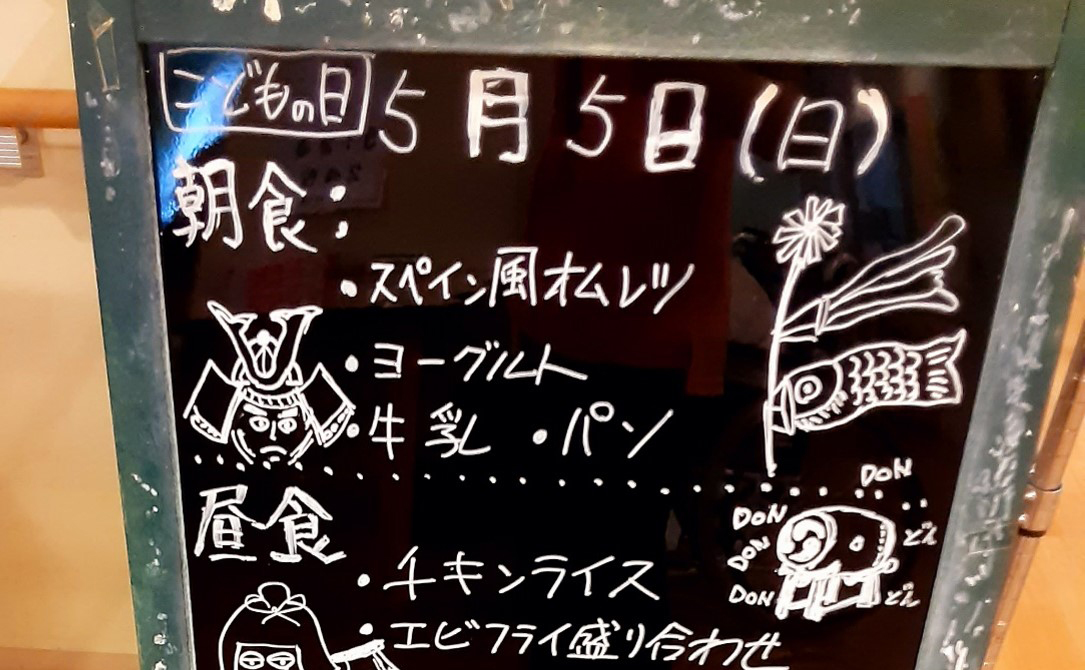 こどもの日 5月5日(日)
朝食:
・スペイン風オムレツ
・ヨーグルト
・牛乳 ・パン
DON
昼食
DON
どん
DON
DON
どん
・チキンライス
・エビフライ盛り合わせ